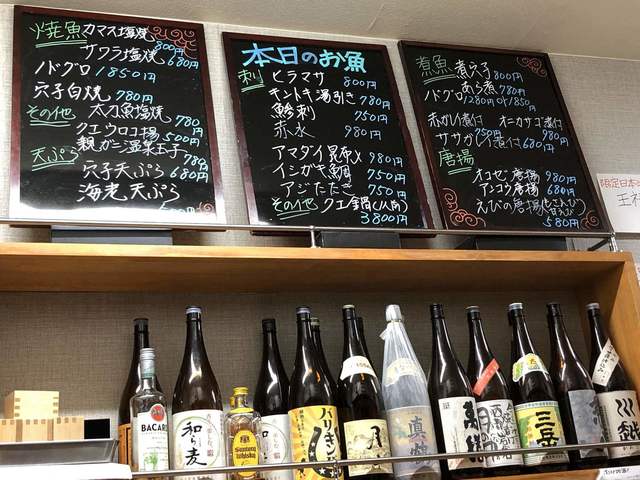 焼魚 カマス塩焼 800円
サワラ塩焼 680円
ノドグロ 1850円
穴子白焼 780円
その他 太刀魚塩焼 780円
クエウロコ揚 500円
親ガニ温菜玉子 780円
天ぷら
穴子天ぷら 680円
海老天ぷら
本日のお魚
刺 ヒラマサ 800円
キントキ湯引き 780円
鯵刺 750円
赤水 980円
アマダイ昆布〆 980円
イシガキ鯛 750円
アジたたき 750円
その他 クエ全席(1人前) 3800円
煮魚 煮穴子 800円
あら煮 780円
ノドグロ 1280円 or 1850円
赤がい煮付 オニカサゴ煮付
ササガレイ煮付 750円 680円
唐揚
オコゼ唐揚 980円
アンコウ唐揚 680円
えびの唐揚 580円
限定日本
BACARDI
和ら麦
Suntory Whisky
バリキン
真鶴
三岳